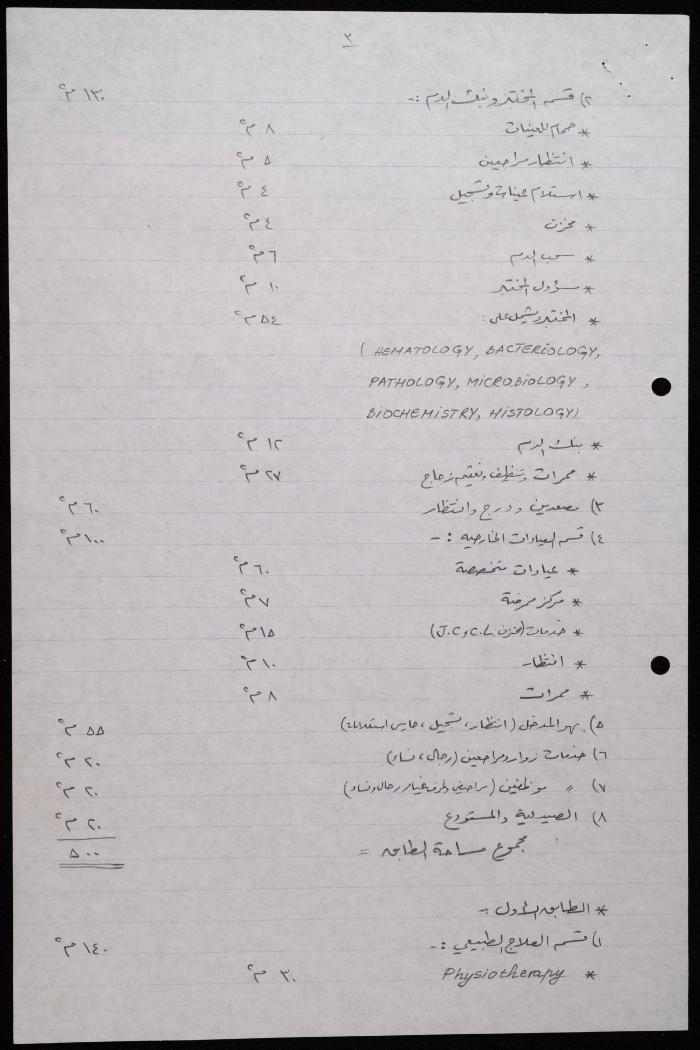 ٣
٢) قسم المختبر وبنك الدم :- ١٣٠ م٢
* حمام للعينات ٨ م٢
* انتظار مراجعين ٥ م٢
* استلام عينات وتسجيل ٤ م٢
* مخزن ٤ م٢
* سحب الدم ٦ م٢
* مسؤول المختبر ١٠ م٢
* المختبر ويشمل على : ٥٤ م٢
( HEMATOLOGY, BACTERiOLOGY,
PATHOLOGY, MiCROBiOLOGY ,
BiOCHEMiSTRY, HiSTOLOGY)
* بنك الدم ١٢ م٢
* ممرات وتنظيف وتعقيم زجاج ٢٧ م٢
٣) مصعدين ودرج وانتظار ٦٠ م٢
٤) قسم العيادات الخارجيه :- ١٠٠ م٢
* عيادات متخصصة ٦٠ م٢
* مركز ممرضة ٧ م٢
* خدمات (مخزن J.C, C.L.) ١٥ م٢
* انتظار ١٠ م٢
* ممرات ٨ م٢
٥) بهو المدخل (انتظار، تسجيل، استعلامات) ٥٥ م٢
٦) خدمات زوار ومراجعين (رجال، نساء) ٢٠ م٢
٧) " موظفين (مراحيض وغرف غيار رجال ونساء) ٢٠ م٢
٨) الصيدلية والمستودع ٢٠ م٢
مجموع مساحة الطابق = ٥٠٠
* الطابق الأول :-
١) قسم العلاج الطبيعي :- ١٤٠ م٢
* Physiotherapy ٣٠ م٢